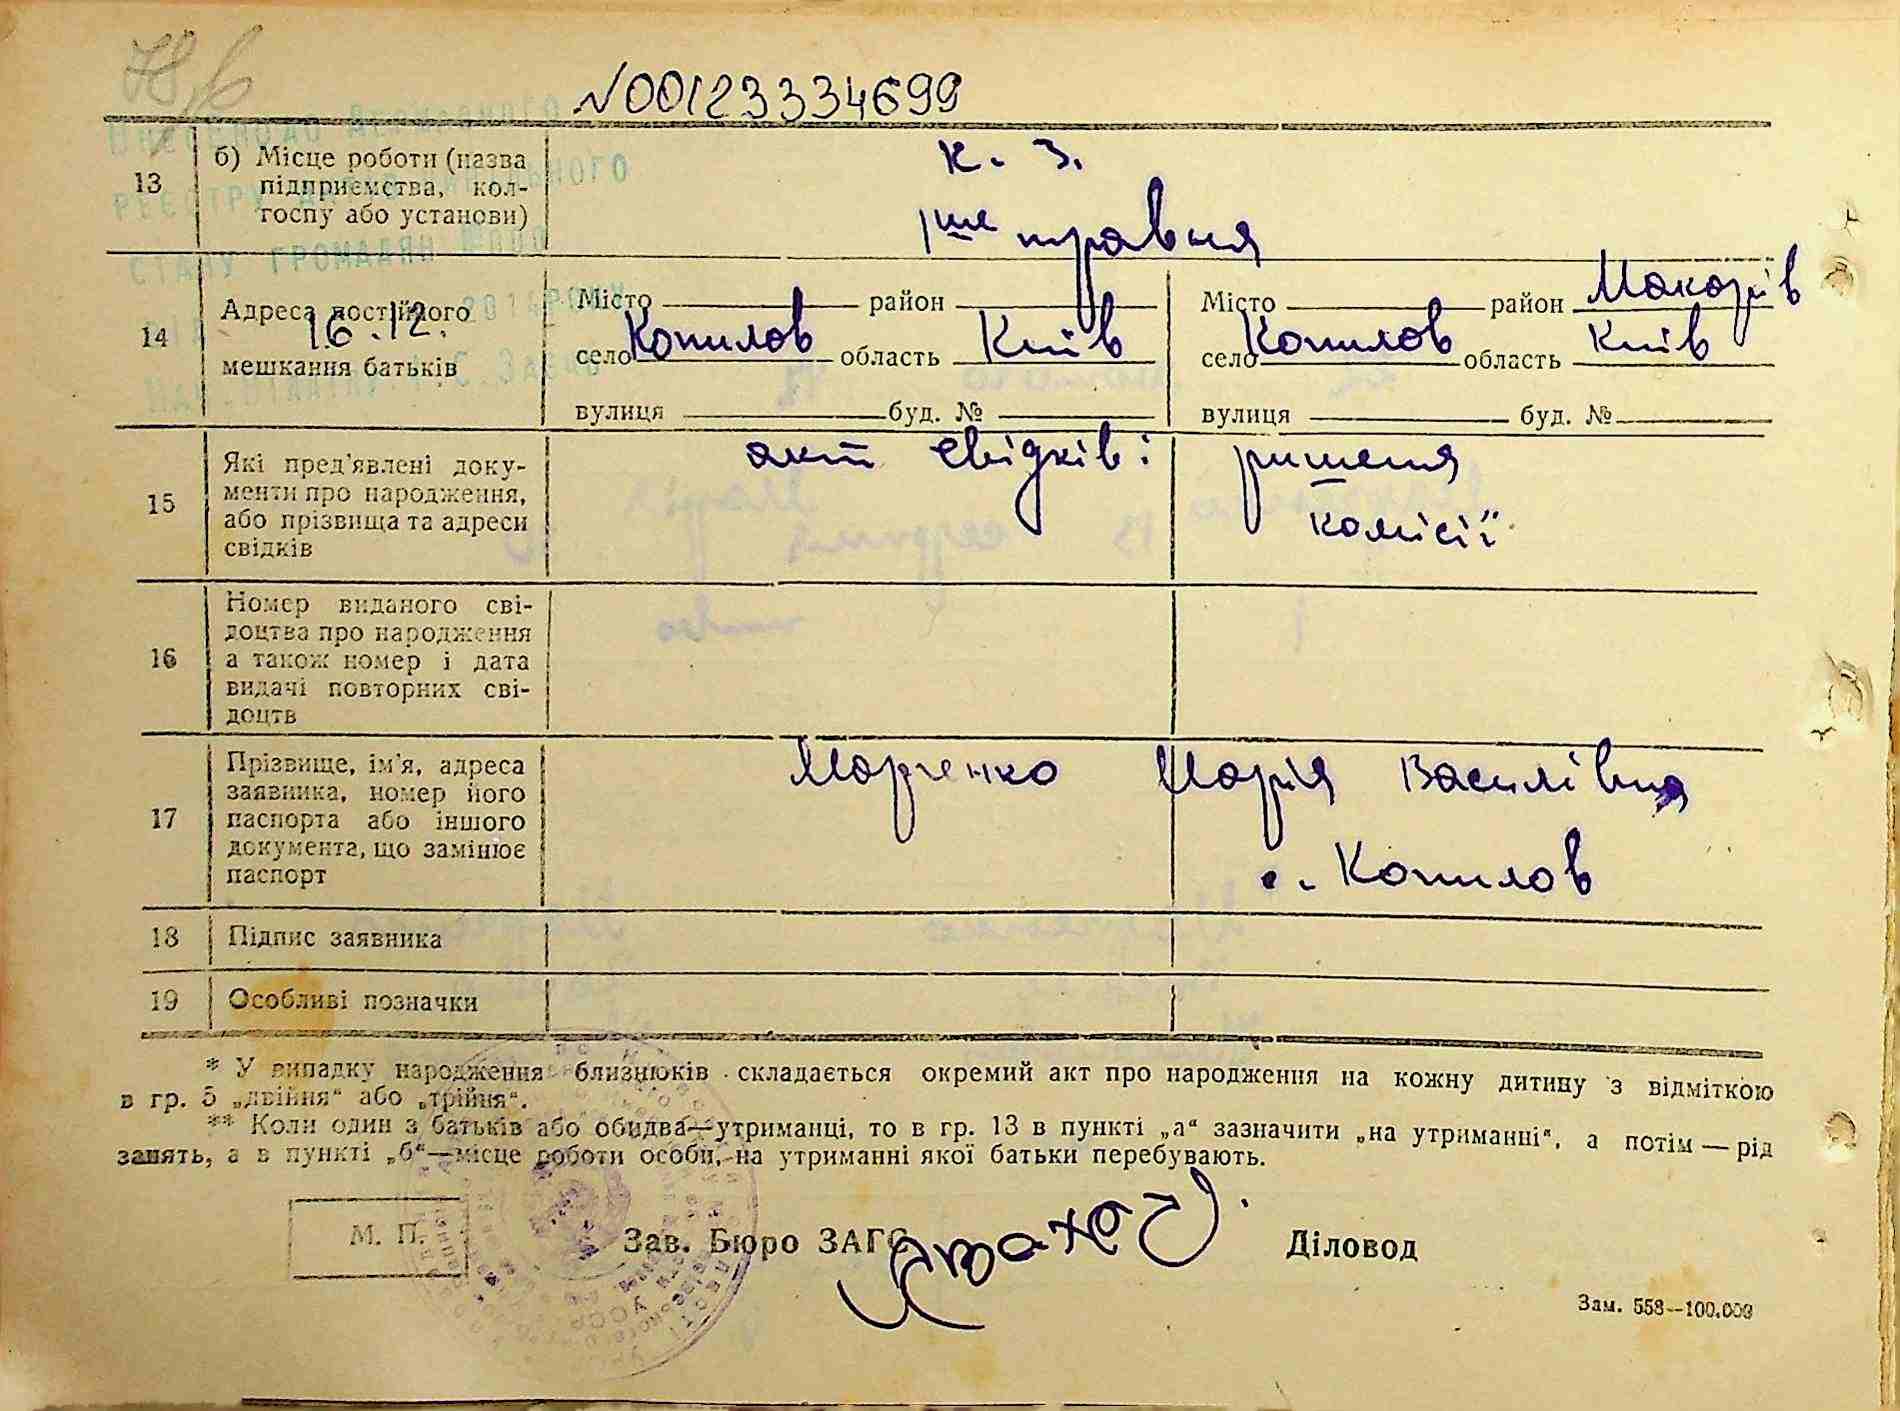 №00123334699
Внесено до Державного
реєстру актів цивільного
стану громадян
13 б) Місце роботи (назва
підприємства, кол-
госпу або установи)
к. з.
1ше травня
14 Адреса постійного
мешкання батьків
16.12.
Місто район
село Копилов область Київ
вулиця буд. №
Місто район Макарів
село Копилов область Київ
вулиця буд. №
15 Які пред'явлені доку-
менти про народження,
або прізвища та адреси
свідків
акт свідків: ришення
комісії
16 Номер виданого сві-
доцтва про народження
а також номер і дата
видачі повторних сві-
доцтв
17 Прізвище, ім'я, адреса
заявника, номер його
паспорта або іншого
документа, що замінює
паспорт
Марченко Марія Василівна
с. Копилов
18 Підпис заявника
19 Особливі позначки
* У випадку народження близнюків складається окремий акт про народження на кожну дитину з відміткою
в гр. 5 „двійня“ або „трійня“.
** Коли один з батьків або обидва—утриманці, то в гр. 13 в пункті „а“ зазначити „на утриманні“, а потім — рід
занять, а в пункті „б“—місце роботи особи, на утриманні якої батьки перебувають.
М. П.
Зав. Бюро ЗАГС
Діловод
Зам. 558—100.000